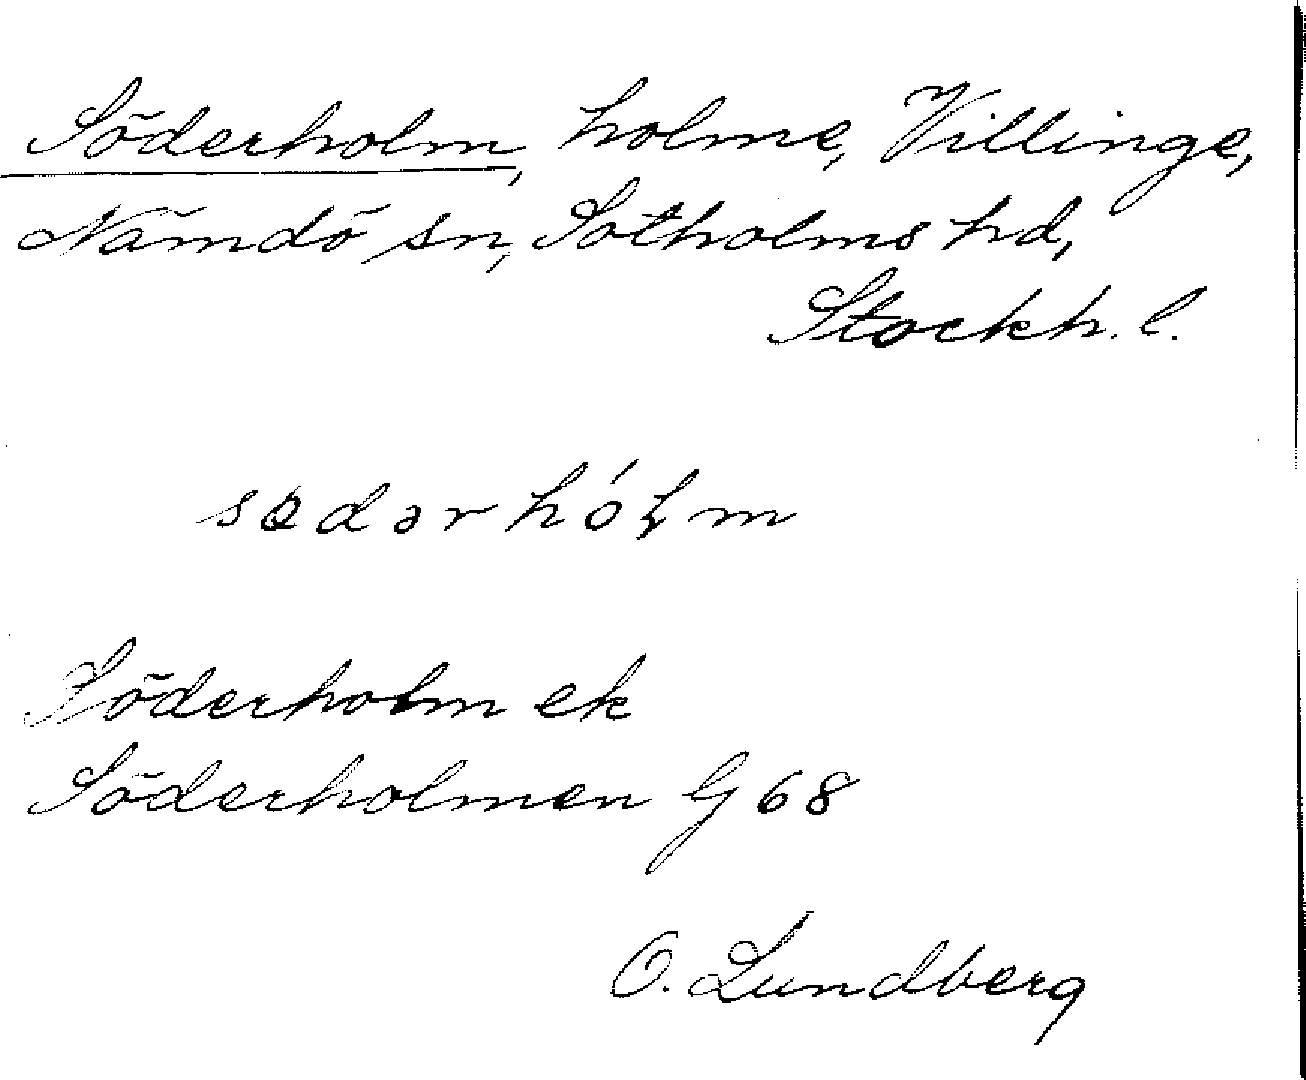 Söderholm, holme, Villinge,
Nämdö sn, Sotholms hd,
Stockh. l.
sɵdərhóɫm
Söderholm ek
Söderholmen G 68
O. Lundberg